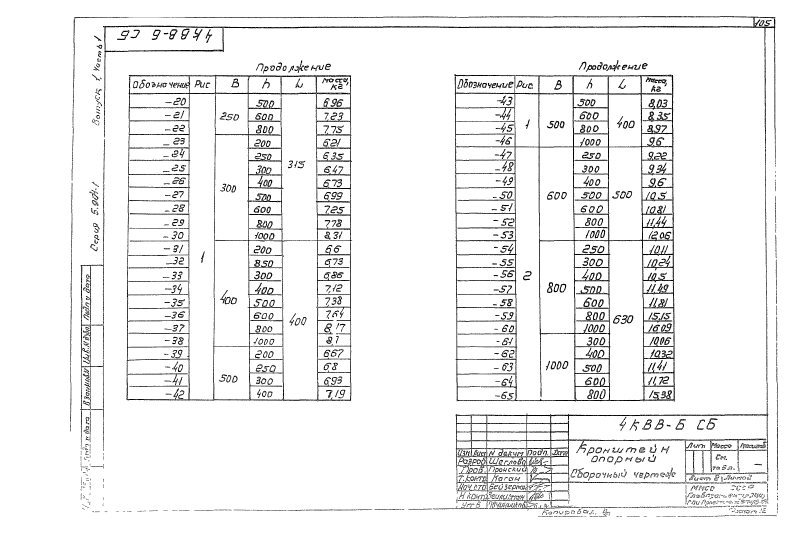 105
4КВВ-Б СБ
Выпуск 1, Часть 1
Серия 5.904-1
Продолжение
Обозначение Рис В h L Масса, кг
-20 1 250 500 315 6,96
-21 600 7,23
-22 800 7,75
-23 300 200 6,21
-24 250 6,35
-25 300 6,47
-26 400 6,73
-27 500 6,99
-28 600 7,25
-29 800 7,78
-30 1000 8,31
-31 400 200 400 6,6
-32 850 6,73
-33 300 6,86
-34 400 7,12
-35 500 7,38
-36 600 7,64
-37 800 8,17
-38 1000 8,7
-39 500 200 6,67
-40 250 6,8
-41 300 6,93
-42 400 7,19
Продолжение
Обозначение Рис. В h L Масса, кг
-43 1 500 500 400 8,03
-44 600 8,35
-45 800 8,97
-46 1000 9,6
-47 2 600 250 500 9,22
-48 300 9,34
-49 400 9,6
-50 500 10,5
-51 600 10,81
-52 800 11,44
-53 1000 12,06
-54 800 250 630 10,11
-55 300 10,24
-56 400 10,5
-57 500 11,49
-58 600 11,81
-59 800 15,15
-60 1000 16,09
-61 1000 300 10,06
-62 400 10,32
-63 500 11,41
-64 600 11,72
-65 800 15,38
4КВВ-Б СБ
Кронштейн опорный
Сборочный чертеж
Лит Масса Масштаб
См. табл. —
Изм Лист N докум Подп. Дата
Разраб Щеглова
Пров. Пронский
Т.контр Каган
Нач.отд
Н.контр
Утв
Копировал
Подп и дата